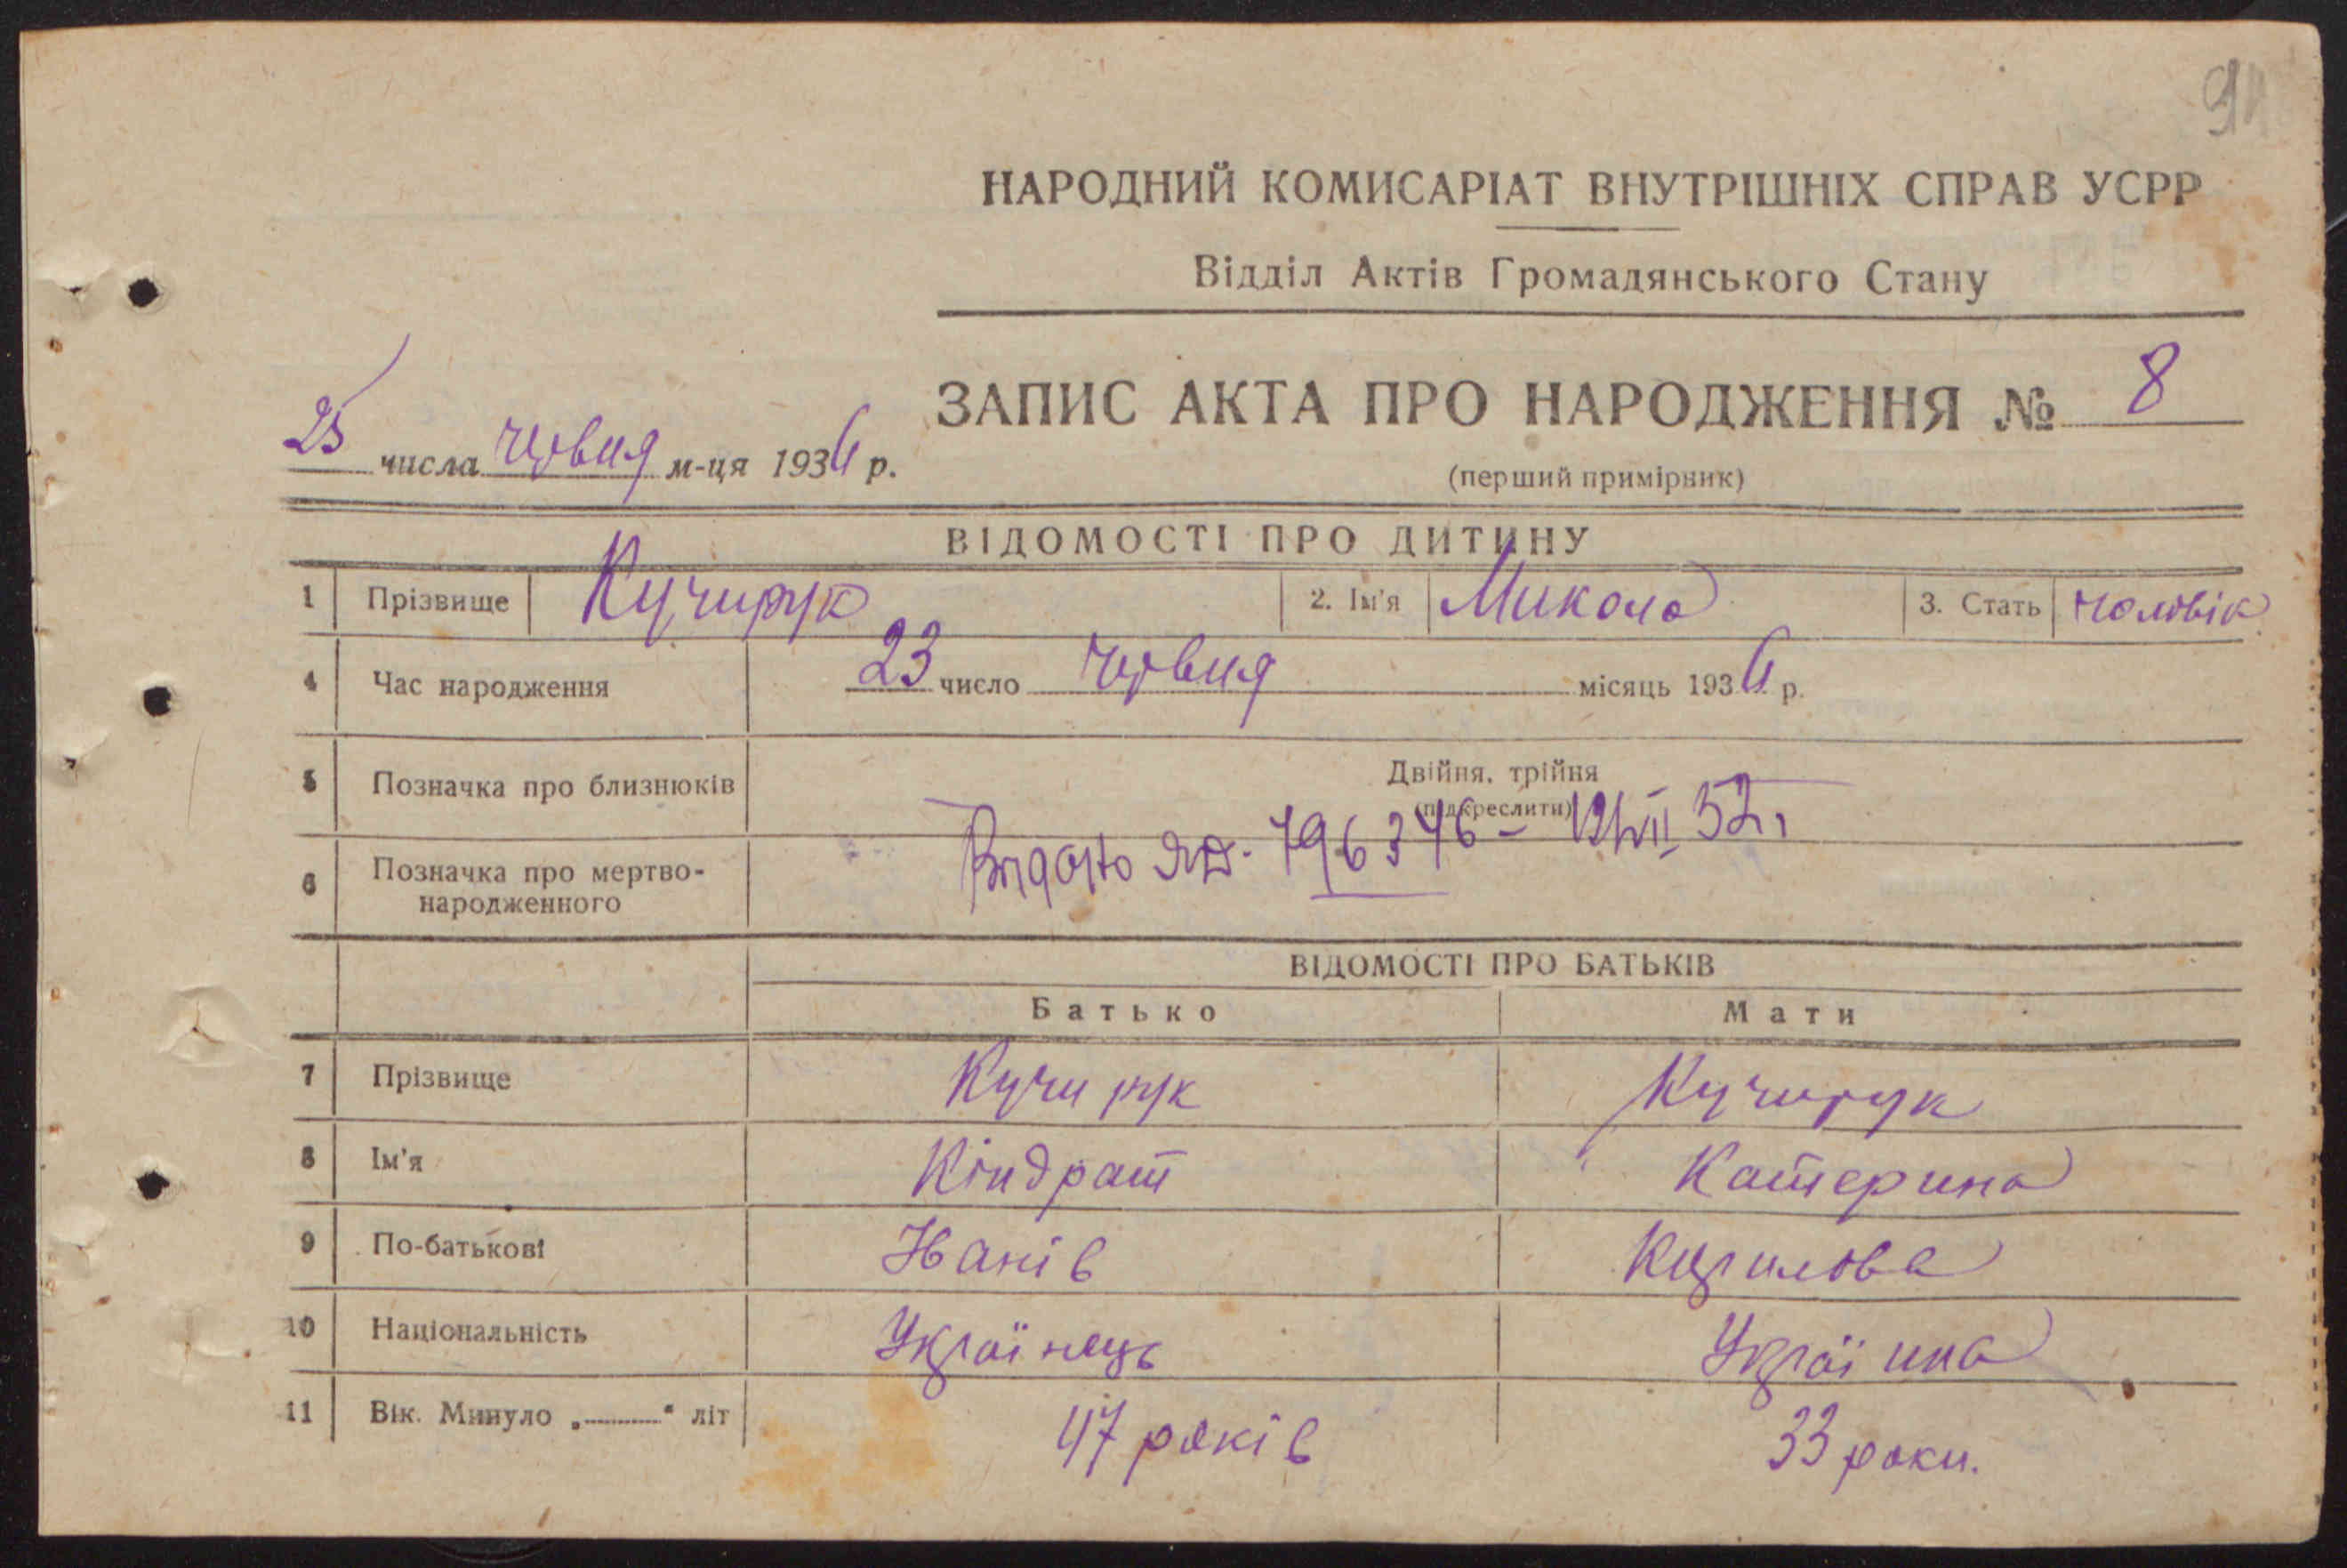 НАРОДНИЙ КОМИСАРІАТ ВНУТРІШНІХ СПРАВ УСРР
Відділ Актів Громадянського Стану
ЗАПИС АКТА ПРО НАРОДЖЕННЯ № 8
25 числа червня м-ця 1934 р.
(перший примірник)
ВІДОМОСТІ ПРО ДИТИНУ
1 Прізвище Кучирук 2. Ім'я Микола 3. Стать чоловік
4 Час народження 23 число червня місяць 1934 р.
5 Позначка про близнюків Двійня, трійня
(підкреслити)
796346 – 52
6 Позначка про мертво-
народженного
ВІДОМОСТІ ПРО БАТЬКІВ
Батько Мати
7 Прізвище Кучирук Кучирук
8 Ім'я Кіндрат Катерина
9 По-батькові Іванів Кирилова
10 Національність Українець Українка
11 Вік. Минуло „ “ літ 47 років 33 роки.